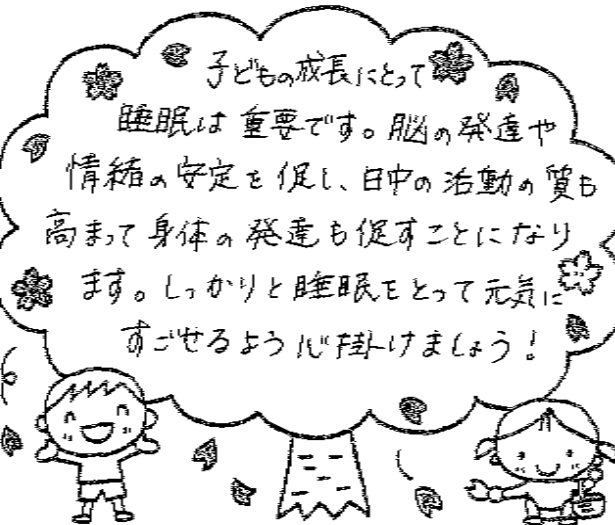 子どもの成長にとって
睡眠は重要です。脳の発達や
情緒の安定を促し、日中の活動の質も
高まって身体の発達も促すことになり
ます。しっかりと睡眠をとって元気に
すごせるよう心掛けましょう！